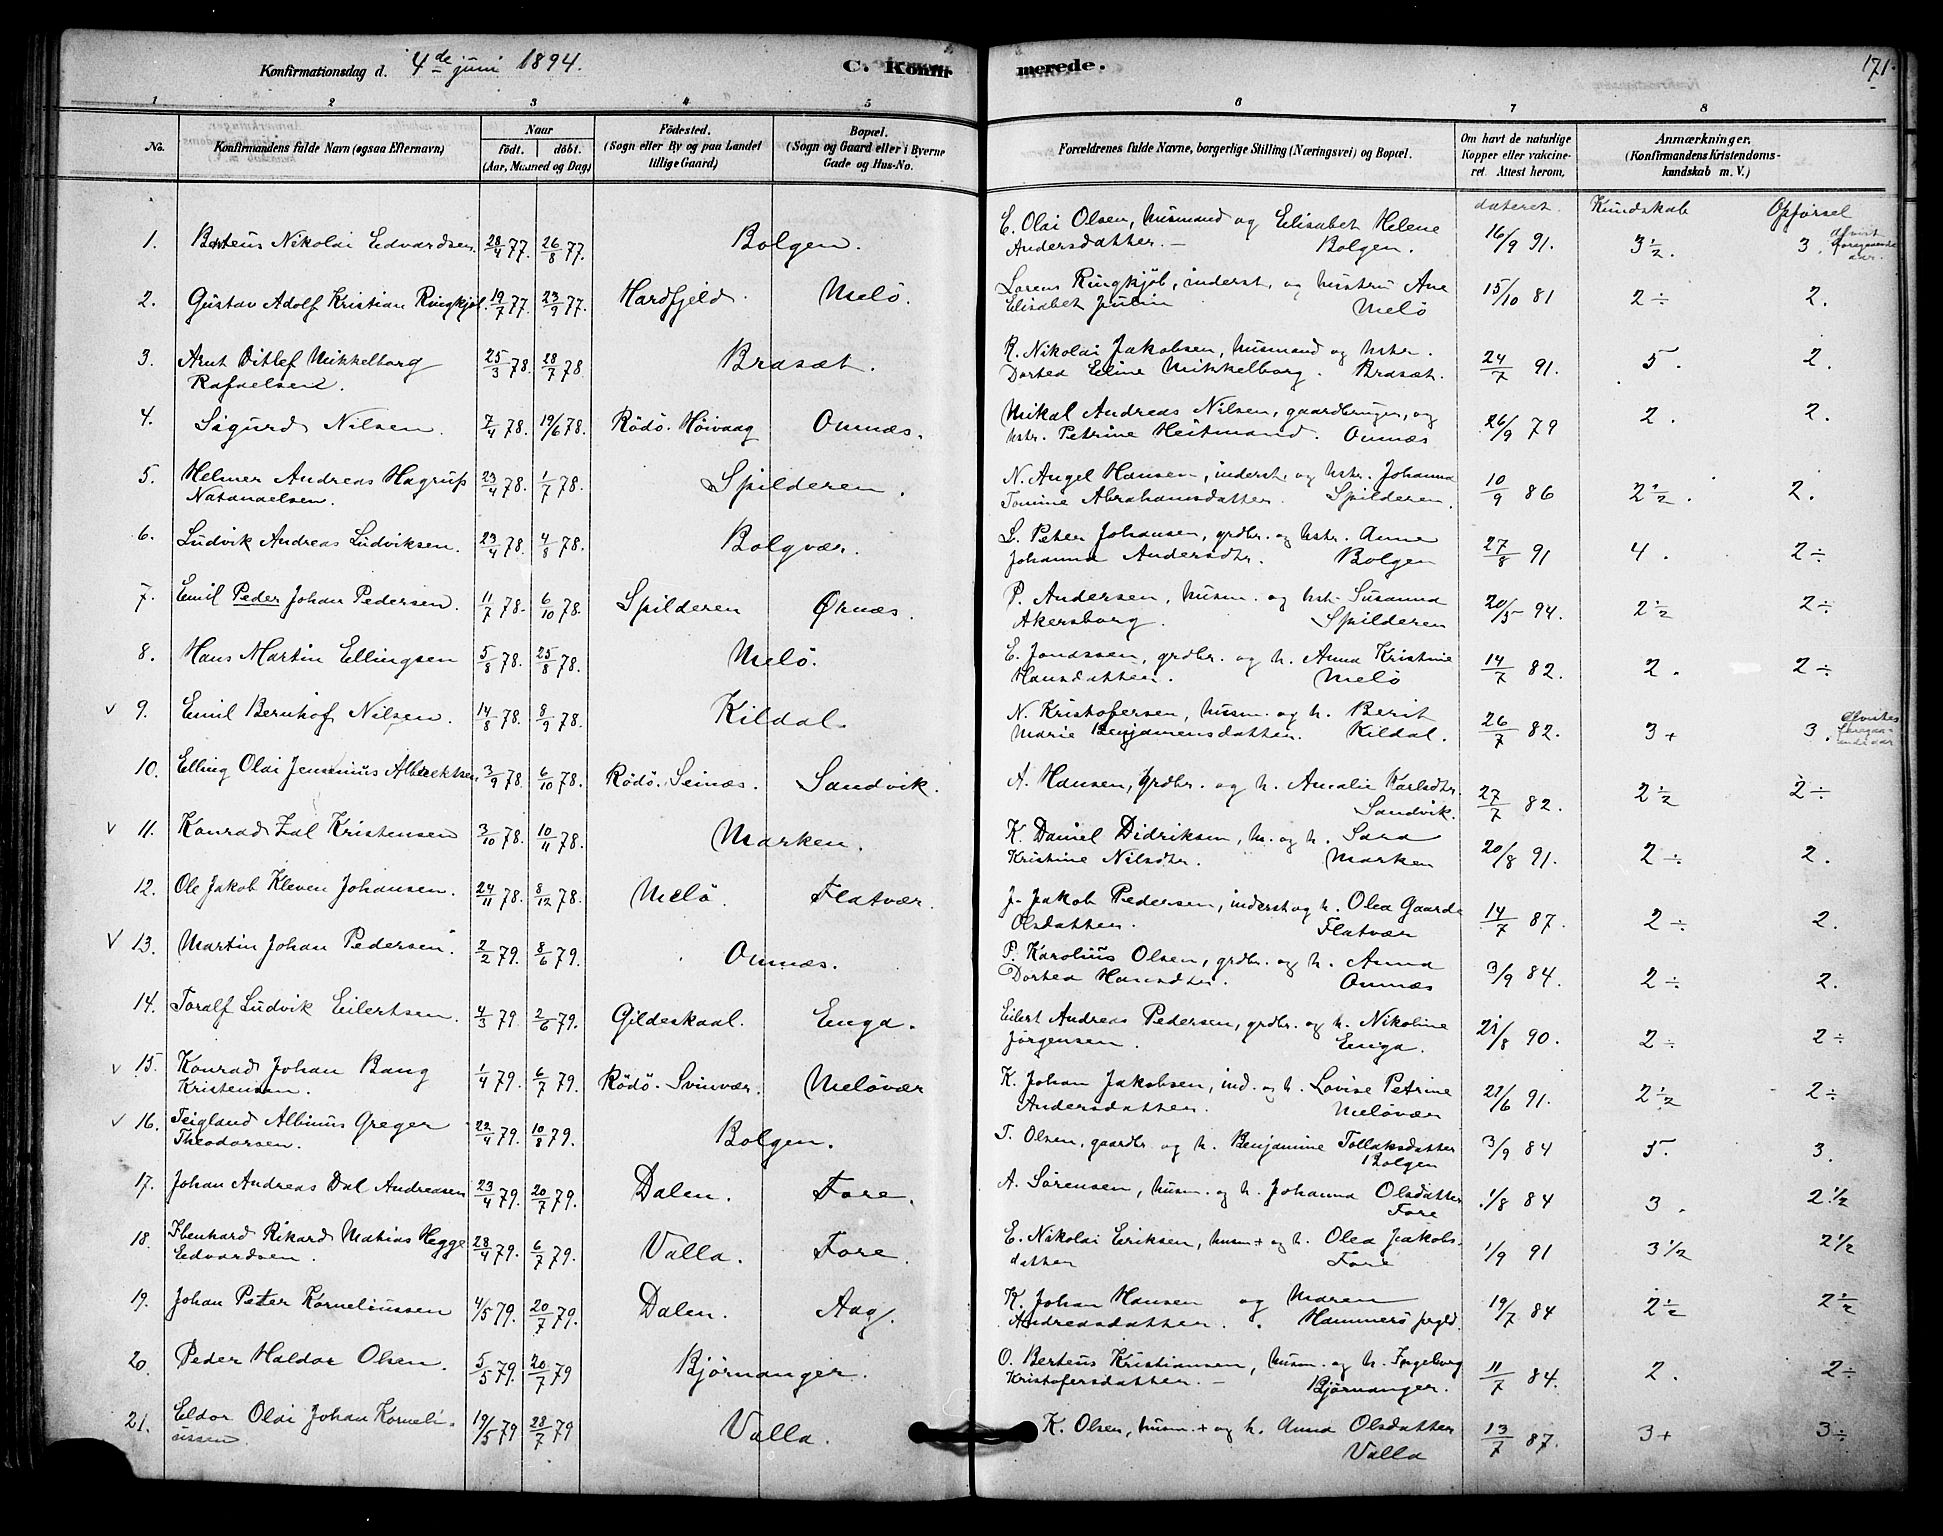 Konfirmationsdag d. 4de juni 1894. C. Konfirmerede. 171.
1 2 3 4 5 6 7 8
No. Konfirmandens fulde Navn (ogsaa Efternavn) Naar Født. døbt. (Aar, Maaned og Dag) Fødested. (Sogn eller By og paa Landet tillige Gaard) Bopæl. (Sogn og Gaard eller i Byerne Gade og Hus-No. Forældrenes fulde Navne, borgerlige Stilling (Næringsvei) og Bopæl. Om havt de naturlige Kopper eller vakcineret. Attest herom, dateret. Anmærkninger. (Konfirmandens Kristendomskundskab m. V.) Kundskab Opførsel
1. Berteus Nikolai Edvardsen. 28/4 77. 26/8 77. Bolgen. E. Olai Olsen, husmand og Elisabet Helene
Andersdatter. — Bolgen. 16/9 91. 3½. 3. afvist foregaaende aar.
2. Gustav Adolf Kristian Ringkjøb. 19/7 77. 23/9 77. Hardfjeld. Melö. Lorens Ringkjöb, inderst, og hustru Ane
Elisabet Julin Melö 15/10 81 2÷ 2.
3. Arnt Ditlef Mikkelborg 25/3 78. 28/7 78. Brasæt. R. Nikolai Jakobsen, husmand og hstr.
Rafaelsen. Dortea Eline Mikkelborg. Brasæt. 24/7 91. 5. 2.
4. Sigurd Nilsen. 7/4 78. 19/6 78. Rödö. Höivaag Onnæs. Mikal Andreas Nilsen, gaardbruger, og
hstr. Petrine Heitmand. Onnæs 26/9 79 2. 2.
5. Helmer Andreas Hagrup 23/4 78. 1/7 78. Spilderen. N. Angel Hansen, inderst, og hstr. Johanna
Natanaelsen. Tomine Abrahamsdatter. Spilderen. 10/9 86 2½. 2.
6. Ludvik Andreas Ludviksen. 23/4 78. 4/8 78. Bolgvær. L. Peter Johansen, grdbr. og hstr. Anne
Johanna Andersdtr. Bolgen 27/8 91 4. 2÷
7. Emil Peder Johan Pedersen. 11/7 78. 6/10 78. Spilderen Ørnæs. P. Andersen, husm. og hstr. Susanna
Akersborg. Spilderen 20/5 94. 2½ 2÷
8. Hans Martin Ellingsen 5/8 78. 25/8 78. Melö. E. Jonassen, grdbr. og h. Anna Kristine
Hansdatter. Melö 14/7 82. 2. 2÷
v 9. Emil Bernhof Nilsen. 14/8 78. 8/9 78. Kildal. N. Kristofersen, husm. og h. Berit
Marie Benjamensdatter. Kildal. 26/7 82. 3+ 3.
10. Elling Olai Jensenius Albrektsen 3/9 78. 6/10 78. Rödö. Seinæs. Sandvik. A. Hansen, grdbr. og h. Amalie Karlsdtr.
Sandvik. 27/7 82. 2½ 2÷
v 11. Konrad Zal Kristensen 3/10 78. 10/11 78. Marken. K. Daniel Didriksen, h. og h. Sara
Kristine Nilsdtr. Marken 20/8 91. 2÷ 2.
12. Ole Jakob Kleven Johansen. 24/11 78. 8/12 78. Melö. Flatvær. J. Jakob Pedersen, inderst og h. Olea Gaarde
Olsdatter. Flatvær 14/7 87. 2÷ 2.
V 13. Martin Johan Pedersen 2/2 79. 8/6 79. Onnæs. P. Karolius Olsen, grdbr. og h. Anna
Dortea Hansdtr. Onnæs 3/9 84. 2÷ 2.
14. Toralf Ludvik Eilertsen. 4/3 79. 2/6 79. Gildeskaal. Enga. Eilert Andreas Pedersen, grdbr. og h. Nikoline
Jørgensen. Enga. 21/8 90. 2÷ 2÷
v 15. Konrad Johan Bang 1/4 79. 6/7 79. Rödö. Svinvær. Melövær K. Johan Jakobsen, ind. og h. Lovise Petrine
Kristensen. Andersdatter. Melövær 21/6 91. 2½ 2÷
v 16. Teigland Albinus Greger 22/4 79. 10/8 79. Bolgen. T. Olsen, gaardbr. og h. Benjamine Tollaksdatter
Theodorsen. Bolgen 3/9 84 5. 3.
17. Johan Andreas Dal Andreasen 23/4 79. 20/7 79. Dalen. Fore. A. Sørensen, husm. og h. Johanna Olsdatter
Fore 1/8 84 3. 2½
18. Ebenhard Rikard Matias Hegge 28/4 79. 6/7 79. Valla. Fore. E. Nikolai Eriksen, husm. og h. Olea Jakobs-
Edvardsen. datter Fore 1/9 91 3½ 2½
19. Johan Peter Korneliussen 4/5 79. 20/7 79. Dalen. Aag. K. Johan Hansen og Maren
Andreasdatter. Hammerö prgld. 19/7 84 2½ 2½
20. Peder Haldor Olsen. 5/5 79. 20/7 79 Bjørnanger. O. Berteus Kristiansen, husm. og h. Ingeborg
Kristofersdatter. — Bjørnanger. 11/7 84. 2. 2÷
21. Eldor Olai Johan Korneli- 19/5 79 28/7 79 Valla. K. Olsen, husm. og h. Anna Olsdatter
ussen. Valla 13/7 87. 3+ 3÷